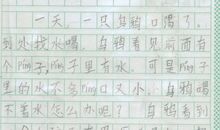 一天,一只乌鸦口渴了,
到处找水喝。乌鸦看见前面有
个píng子,píng子里有水。可是píng子
里的水不多,口又小,乌鸦喝
不着水怎么办呢?乌鸦看到